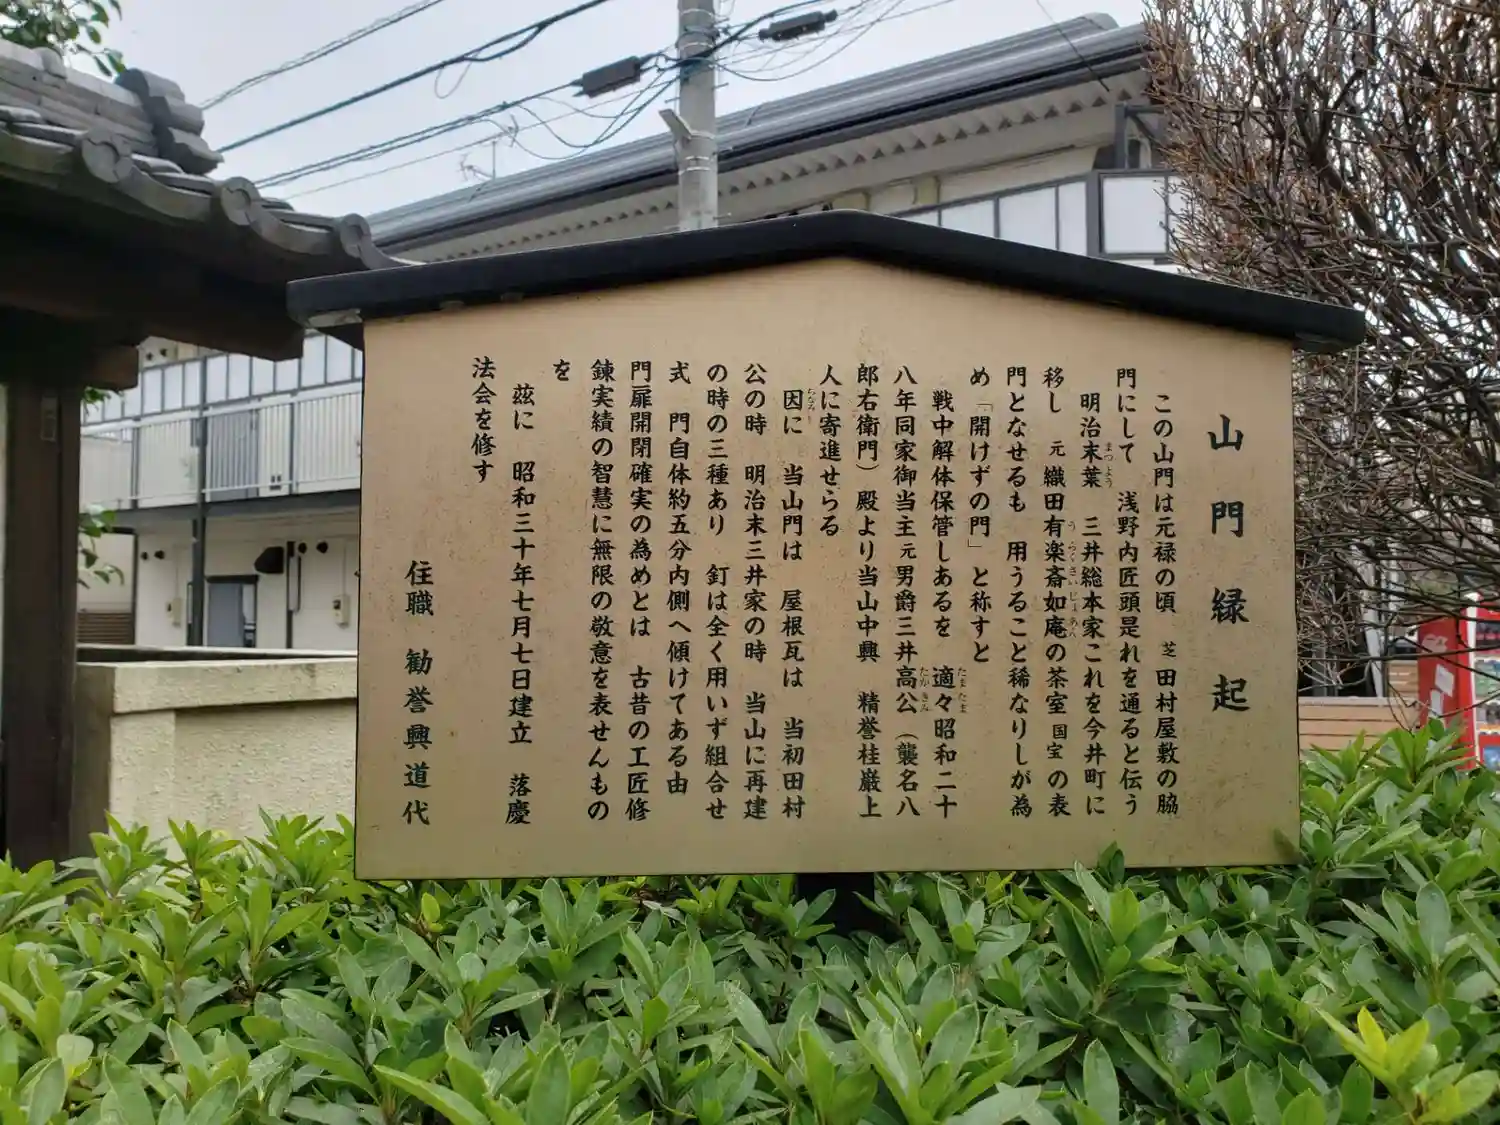 山門緑起
この山門は元禄の頃 芝田村屋敷の脇
門にして 浅野内匠頭是れを通ると伝う
明治末葉 三井総本家これを今井町に
移し 元織田有楽斎如庵の茶室国宝の表
門となせるも 用うること稀なりしが為
め「開けずの門」と称すと
戦中解体保管しあるを 適々昭和二十
八年同家御当主元男爵三井高公(襲名八
郎右衛門)殿より当山中興 精誉桂巌上
人に寄進せらる
因に 当山門は 屋根瓦は 当初田村
公の時 明治末三井家の時 当山に再建
の時の三種あり 釘は全く用いず組合せ
式 門自体約五分内側へ傾けてある由
門扉開閉確実の為めとは 古昔の工匠修
錬実績の智慧に無限の敬意を表せんもの
を
茲に 昭和三十年七月七日建立 落慶
法会を修す
住職 勧誉興道代